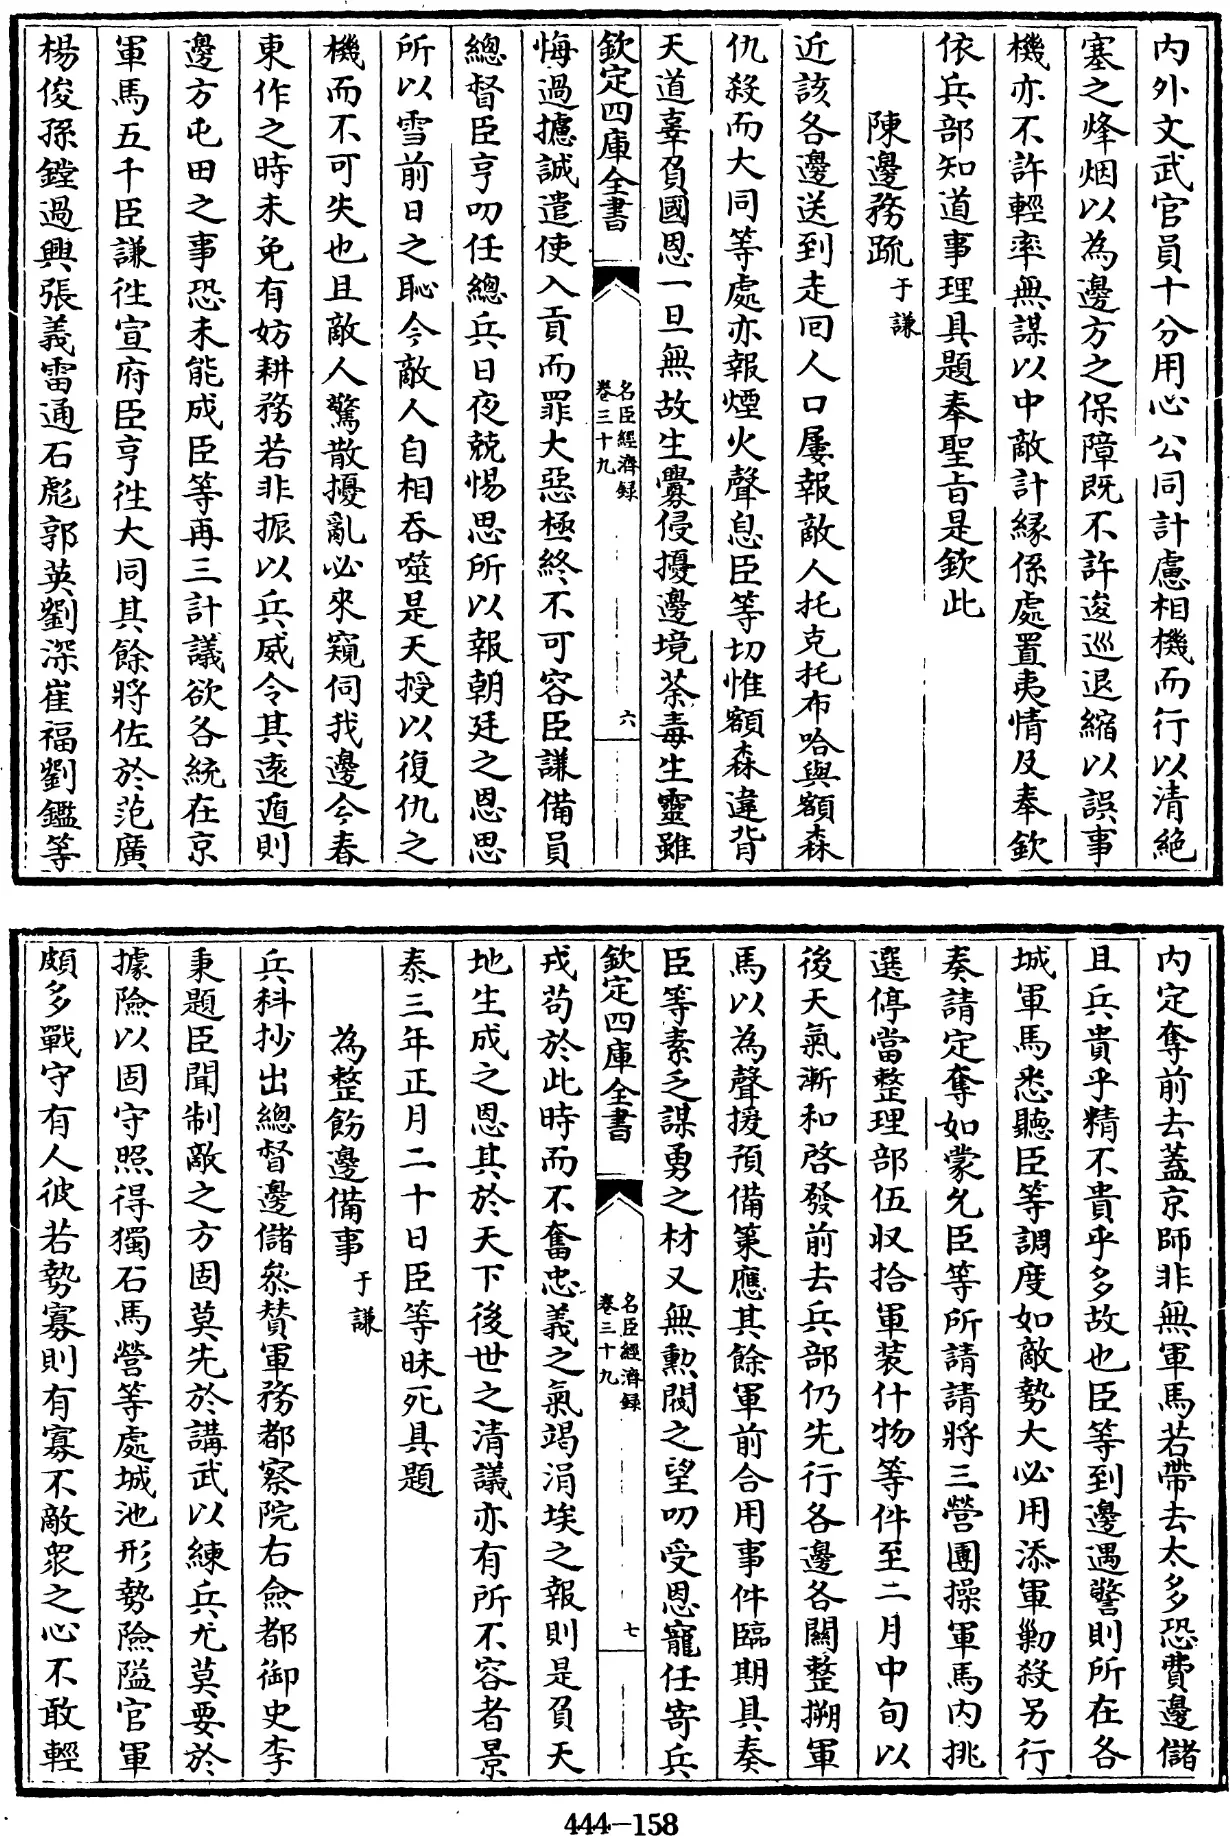 內外文武官員十分用心公同計慮相機而行以清絶
塞之烽烟以為邊方之保障既不許逡巡退縮以誤事
機亦不許輕率無謀以中敵計縁係處置夷情及奉欽
依兵部知道事理具題奉聖旨是欽此
陳邊務疏 于謙
近該各邊送到走回人口屢報敵人托克托布哈與額森
仇殺而大同等處亦報煙火聲息臣等切惟額森違背
天道辜負國恩一旦無故生釁侵擾邊境荼毒生靈雖
欽定四庫全書
名臣經濟録
卷三十九
六
悔過攄誠遣使入貢而罪大惡極終不可容臣謙備員
總督臣亨叨任總兵日夜兢惕思所以報朝廷之恩思
所以雪前日之恥今敵人自相吞噬是天授以復仇之
機而不可失也且敵人驚散擾亂必來窺伺我邊今春
東作之時未免有妨耕務若非振以兵威令其遠遁則
邊方屯田之事恐未能成臣等再三計議欲各統在京
軍馬五千臣謙徃宣府臣亨徃大同其餘將佐於范廣
楊俊孫鏜過興張義雷通石彪郭英劉深崔福劉鑑等
內定奪前去蓋京師非無軍馬若帶去太多恐費邊儲
且兵貴乎精不貴乎多故也臣等到邊遇警則所在各
城軍馬悉聽臣等調度如敵勢大必用添軍勦殺另行
奏請定奪如蒙允臣等所請請將三營團操軍馬內挑
選停當整理部伍収拾軍裝什物等件至二月中旬以
後天氣漸和啓發前去兵部仍先行各邊各關整搠軍
馬以為聲援預備策應其餘軍前合用事件臨期具奏
臣等素乏謀勇之材又無勲閥之望叨受恩寵任寄兵
欽定四庫全書
名臣經濟録
卷三十九
七
戎苟於此時而不奮忠義之氣竭涓埃之報則是負天
地生成之恩其於天下後世之清議亦有所不容者景
泰三年正月二十日臣等昧死具題
為整飭邊備事 于謙
兵科抄出總督邊儲叅賛軍務都察院右僉都御史李
秉題臣聞制敵之方固莫先於講武以練兵尤莫要於
據險以固守照得獨石馬營等處城池形勢險隘官軍
頗多戰守有人彼若勢寡則有寡不敵衆之心不敢輕
444-158